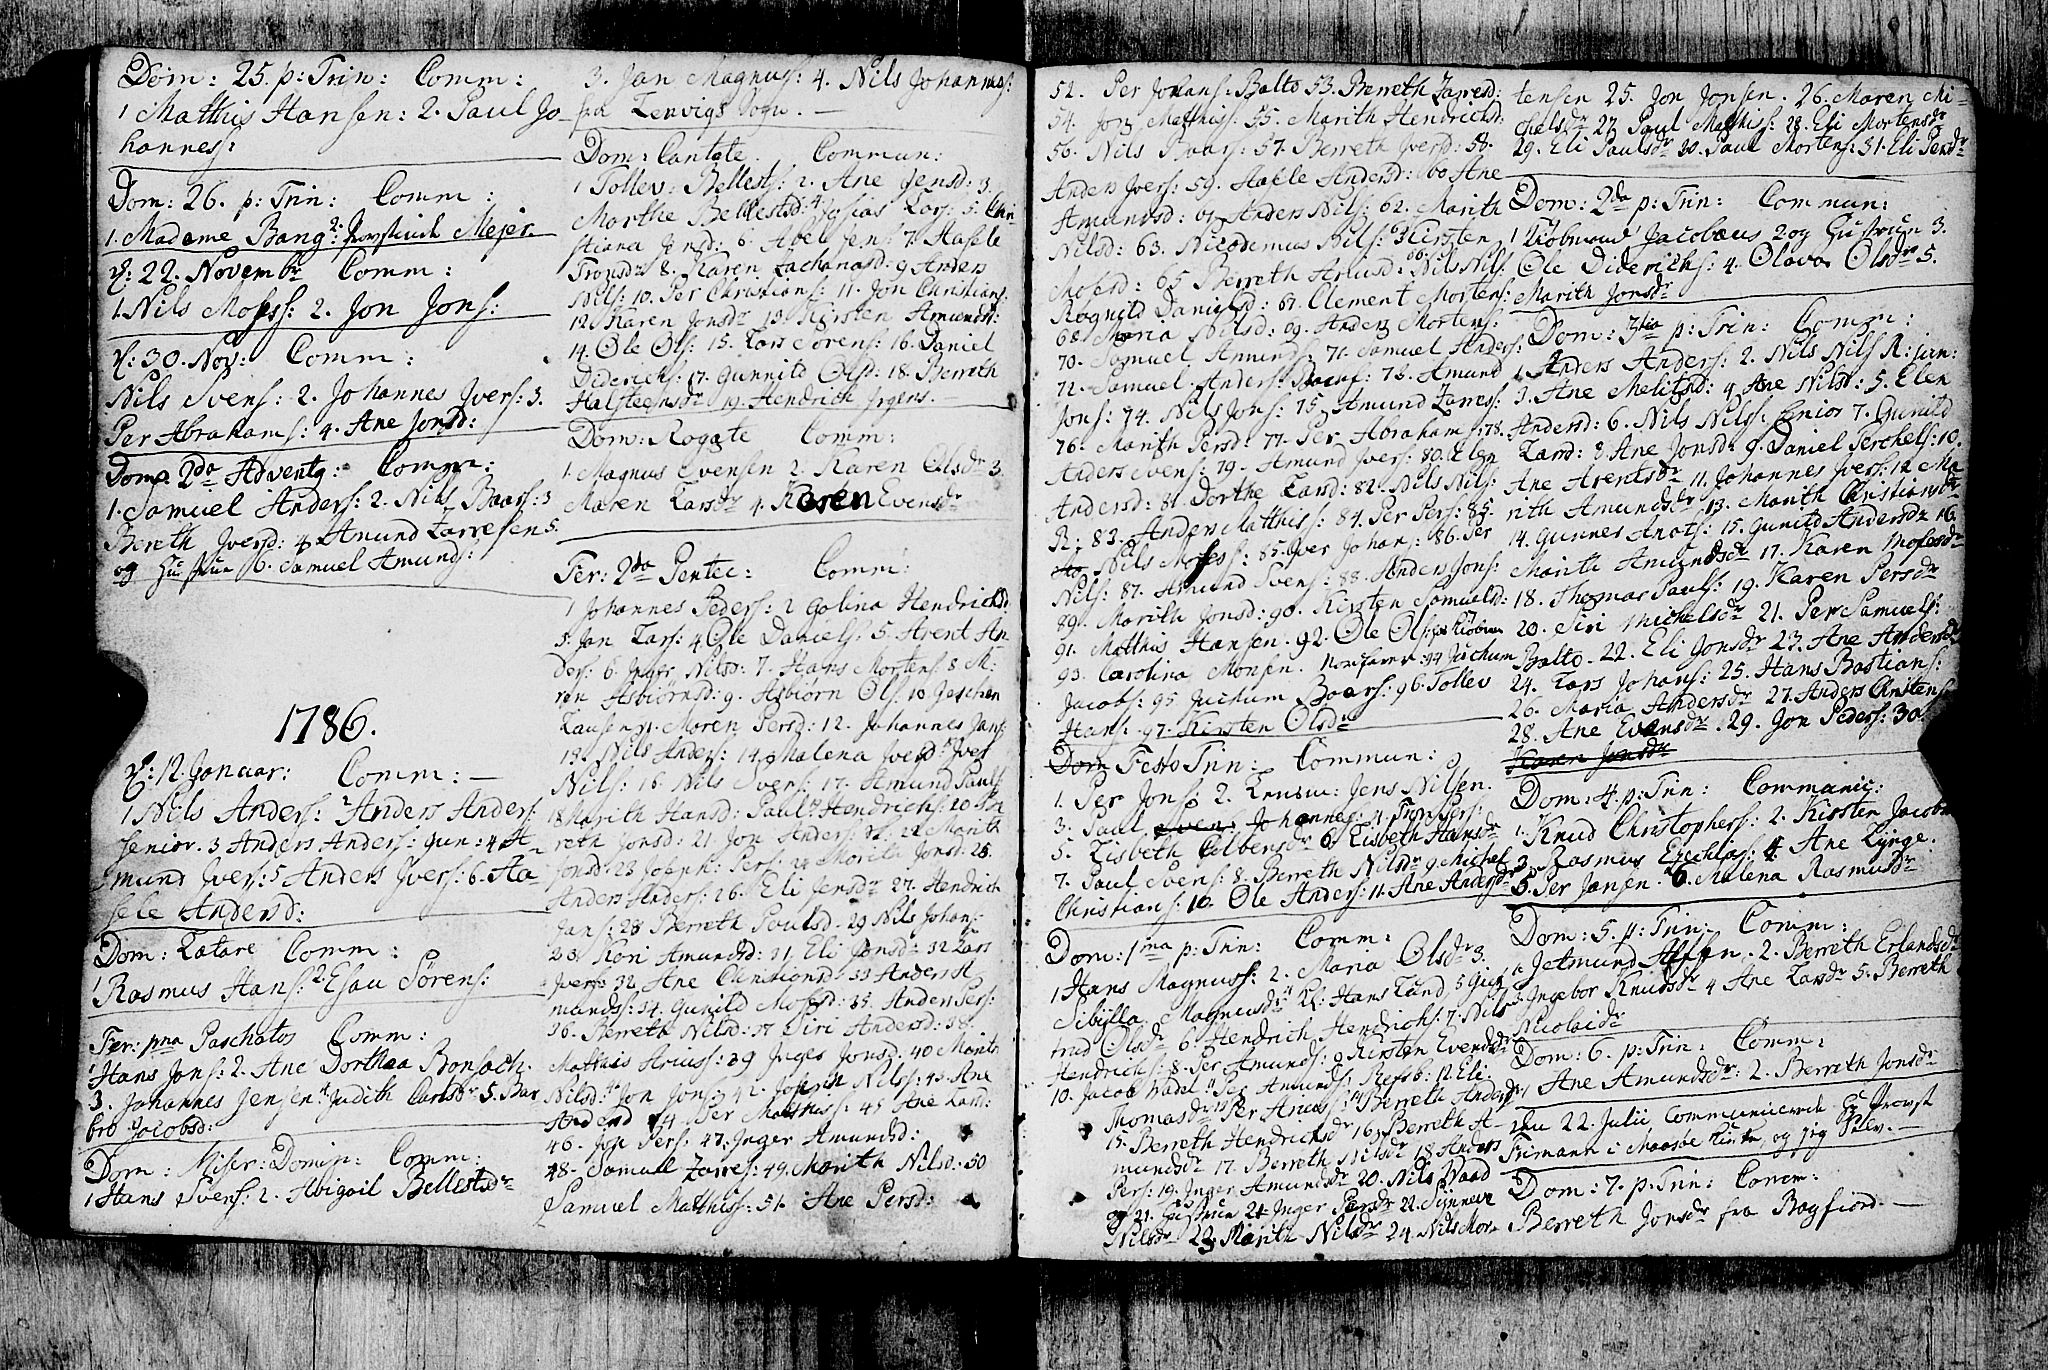 Dom: 25. p: Trin: Comm:
1 Matthis Hansen: 2. Paul Jo-
hannes:
Dom: 26. p: Trin: Comm:
1. Madame Bang: 2. Mejer.
d: 22. Novembr Comm:
1. Nils Moses: 2. Jon Jons:
d: 30. Nov: Comm:
Nils Svens: 2. Johannes Ivers: 3.
Per Abrahams: 4. Ane Jonsd:
Dom 2da Advent: Comm:
1. Samuel Anders: 2. Nils Baars: 3
Bereth Iversd: 4 Amund Zarresen 5.
og Hustrue 6. Samuel Amund:
1786.
d: 12 Januar: Comm: —
1 Nils Anders: 2 Anders Anders:
senior. 3 Anders Anders: jun: 4 A-
mund Ivers: 5 Anders Ivers: 6. Aa-
sele Andersd:
Dom: Lætare Comm:
1 Rasmus Hans: 2 Esau Sörens:
Fer: pma Paschatos Comm:
1 Hans Jons: 2. Ane Dorthea Bonsach.
3. Johannes Jensen 4 Judith Carlsdr 5. Bar
bro Jacobsd:
Dom: Miser: Domin: Comm:
1 Hans Svens: 2. Abigail Bellestsdr
3. Jan Magnus: 4. Nils Johannes:
fra Lervigs Sogn. —
Dom: Cantate. Commun:
1 Tollev: Bellests: 2. Ane Jensd: 3.
Marthe Bellestsd: 4. Josias Lars: 5. Chri
stiana Jonsd: 6. Abel Jen: 7. Hasele
Tronsdr 8. Karen Zachariasd: 9 Anders
Nils: 10. Per Christians: 11. Jon Christians:
12. Karen Jonsdr 13. Kirsten Amundsd:
14. Ole Ols: 15. Lars Sorens: 16. Daniel
Diderichs: 17. Gunnild Olsd: 18. Berreth
Halsteensdr 19. Hendrich Jrgens. —
Dom: Rogate Comm:
1. Magnus Evensen 2. Karen Olsdr 3.
Maren Larsdr 4. Karen Evensdr
Fer: 2da Pentec: Comm:
1 Johannes Peders: 2 Golina Hendrichsd:
3. Jan Lars: 4 Ole Daniels: 5. Arent An
ders: 6. Inger Nilsd: 7. Hans Mortens: 8 M:
ren Asbiornsd: 9. Asbiorn Ols: 10 Jochen
Lausen 11. Maren Persd: 12. Johannes Jans:
13. Nils Anders: 14. Malena Iversd 15 Iver
Nils: 16. Nils Svers: 17. Amund Pauls
18 Marith Hansd: Paul 19 Hendrichs: 20 Ber
reth Jonsd: 21 Jon Anders: 22 Marith
Jonsd: 23 Joseph: Pers: 24 Marith Jonsd. 25.
Anders Anders: 26. Eli Jensdr 27. Hendrich
Jans: 28 Berreth Poulsd. 29 Nils Johans:
Kari Amundsd: 31 Eli Jonsd: 32 Lars
Ivers: 32. Ane Christiansd: 33 Anders A
munds: 34. Gunild Mosesd: 35. Anders Pers:
36. Berreth Nilsd: 37 Siri Andersd: 38.
Matthis Arius: 39 Inger Jonsd. 40 Marit
Nilsd: 41 Jon Jons: 42 Joseph Nils: 43. Ane
Andersd 44 Per Matthis: 45 Ane Larsd:
46. Jon Pers: 47. Inger Amundsd:
48. Samuel Zarres: 49. Marith Nilsd. 50
Samuel Matthis: 51. Ane Persd:
52. Per Johans: Balto 53. Berreth Zarresd:
54. Jon Matthis: 55. Marith Hendrichsd:
56. Nils Baars: 57. Berreth Iversd: 58.
Anders Ivers: 59. Aasele Andersd: 60 Ane
Amundsd: 61 Anders Nils: 62. Marith
Nilsd: 63. Nicodemus Nils: 64 Kirsten
Mosesd: 65 Berreth Ariusd: 66 Nils Nils:
Ragnild Danielsd: 67. Clement Mortens:
68. Maria Nilsd: 69. Anders Mortens:
70. Samuel Amunds: 71. Samuel Anders:
72. Samuel Anders: Baars: 73. Amund
Jons: 74. Nils Jons: 75. Amund Zarres:
76. Marith Persd: 77. Per Abrahams: 78.
Anders Svens: 79. Amund Ivers: 80. Elen
Andersd: 81 Dorthe Larsd: 82. Nils Nils:
R: 83. Anders Matthis: 84. Per Pers: 85.
Nils Moses: 85. Iver Johans: 86. Per
Nils: 87. Amund Svens: 88. Anders Jons:
89. Marith Jonsd: 90. Kirsten Samuelsd:
91. Matthis Hansen. 92. Ole Ols:
93. Carolina Monsen. 94 Juchum
Jacobs: 95 Juchum Baars: 96. Tollev
Hans: 97. Kirsten Olsdr
Dom Festo Trin: Commun:
1. Per Jons: 2. Jens Nilsen.
3. Paul Sven: Johannes: 4. Pers:
5. Lisbeth Colbensdr 6. Lisbeth Hansdr
7. Paul Svens: 8. Berreth Nilsdr 9 Michel
Christians: 10. Ole Anders: 11. Ane Andersdr
Dom: 1ma p: Trin: Comm:
1 Hans Magnus: 2. Maria Olsdr 3.
Sibylla Magnusdr 4 Kl: Hans Lund, 5 Giær
trud Olsdr 6 Hendrich Hendrichs: 7. Nils
Hendrichs: 8. Per Amunds: 9 Kirsten Evensdr
10. Jacob Wadel 11 Per Amunds: Refsb: 12. Eli
Thomasdr 13 Per Arius: 14 Berreth Andersdr
15. Berreth Hendrichsdr 16. Berreth A-
mundsdr 17. Berreth Nilsdr 18 Anders
Pers: 19. Inger Amundsdr 20. Nils Waad
og 21. Hustrue 21 Inger Persdr 22. Synneve
Nilsdr 23 Marith Nilsdr 24. Nils Mor-
tensen 25. Jon Jonsen. 26. Maren Mi-
chelsdr 27. Paul Mathis: 28. Eli Mortensdr
29. Eli Paulsdr 30. Paul Mortens: 31. Eli Persdr
Dom: 2da p: Trin: Commun:
1 Kiöbmand Jacobæus 2 og Hustrue 3.
Ole Diderichs: 4. Olava Olsdr 5.
Marith Jonsdr
Dom: 3tia p: Trin: Comm:
1. Anders Anders: 2. Nils Nils R: jun:
3. Ane Melitsd: 4 Ane Nilsd: 5. Elen
Andersd: 6. Nils Nils: Senior 7. Gunild
Larsd: 8 Ane Jonsd: 9. Daniel Perthels: 10.
Ane Arentsdr 11. Johannes Ivers: 12 Ma
rith Amundsdr 13. Marith Christiansdr
14. Gunner Anots: 15. Gunild Andersdr 16.
Marith Amundsdr 17. Karen Mosesdr
18. Thomas Pauls: 19. Karen Persdr
20. Siri Michelsdr 21. Per Samuels:
Balto. 22. Eli Jonsdr 23. Ane Andersdr
24. Lars Johans: 25. Hans Bastians:
26. Maria Andersdr 27. Anders Christens:
28. Ane Evensdr. 29. Jon Peders: 30.
Karen Jonsdr
Dom: 4. p: Trin: Communic:
1. Knud Christophers: 2. Kirsten Jacobs
3. Rasmus Ezechias: 4 Ane Lynge.
5. Per Jansen. 6. Malena Rasmusdr
Dom: 5. p: Trin: Comm:
1. Jetmund 2. Berreth Erlandsdr
3. Ingebor Knudsdr 4 Ane Larsdr 5. Berreth
Nicolaidr
Dom: 6. p: Trin: Comm:
1 Ane Amundsdr: 2. Berreth Jonsdr
den 22. Julii, Communicerede Hr Provst
Frimann i Maasøe Kirke, og jeg Selv. —
Dom: 7. p: Trin: Comm:
Berreth Jonsdr fra Bogfiord. —